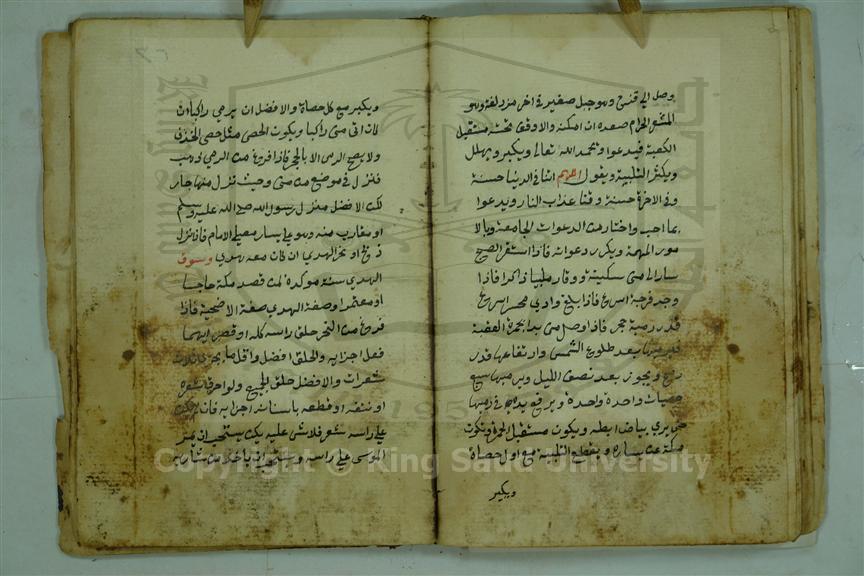 وصل الى قزح وهو جبل صغير في اخر مزدلفة وهو
المشعر الحرام صعده ان امكنه والا وقف تحته مستقبل
الكعبة فيدعوا ويحمد الله تعالى ويكبر ويهلل
ويكثر التلبية ويقول اللهم اتنا في الدنيا حسنة
وفي الاخرة حسنة وقنا عذاب النار ويدعوا
بما احب واختار من الدعوات الجامعة وبالا
مور المهمة ويكرر دعواته فاذا اسفر الصبح
سار الى منى بسكينة ووقار ملبيا ذاكرا فاذا
وجد فرجة اسرع فاذا بلغ وادي محسر اسرع
قدر رمية حجر فاذا وصل منى بدا بجمرة العقبة
فيرميها بعد طلوع الشمس وارتفاعها قدر
رمح ويجوز بعد نصف الليل ويرميها سبع
حصيات واحدة واحدة ويرفع يديه في رميها
حتى يرى بياض ابطه ويكون مستقبل الجمرة وتكون
مكة عن يساره ويقطع التلبية مع اول حصاة
ويكبر
٣٦
ويكبر مع كل حصاة والافضل ان يرمي راكبا ان
كان اتى منى راكبا ويكون الحصى مثل حصى الخذف
ولا يصح الرمي الا بالحجر فاذا فرغ من الرمي ذهب
فنزل في موضع من منى وحيث نزل منها جاز
لكن الافضل منزل رسول الله صلى الله عليه وسلم
او مقارب منه وهو على يسار مصلى الامام فاذا نزل
ذبح او نحر الهدي ان كان معه هدي وسوق
الهدي سنة موكدة لمن قصد مكة حاجا
او معتمرا وصفة الهدي صفة الاضحية فاذا
فرغ من النحر حلق راسه كله او قصر ايهما
فعل اجزابه والحلق افضل واقل ما يجزي ثلاث
شعرات والافضل حلق الجميع ولو احرق شعره
او نتفه او قطعه باسنانه اجزابه فان لم يكن
على راسه شعر فلا شي عليه لكن يستحب ان يمر
الموسى على راسه ويستحب ان ياخذ من شاربه
Copyright © King Saud University
1957